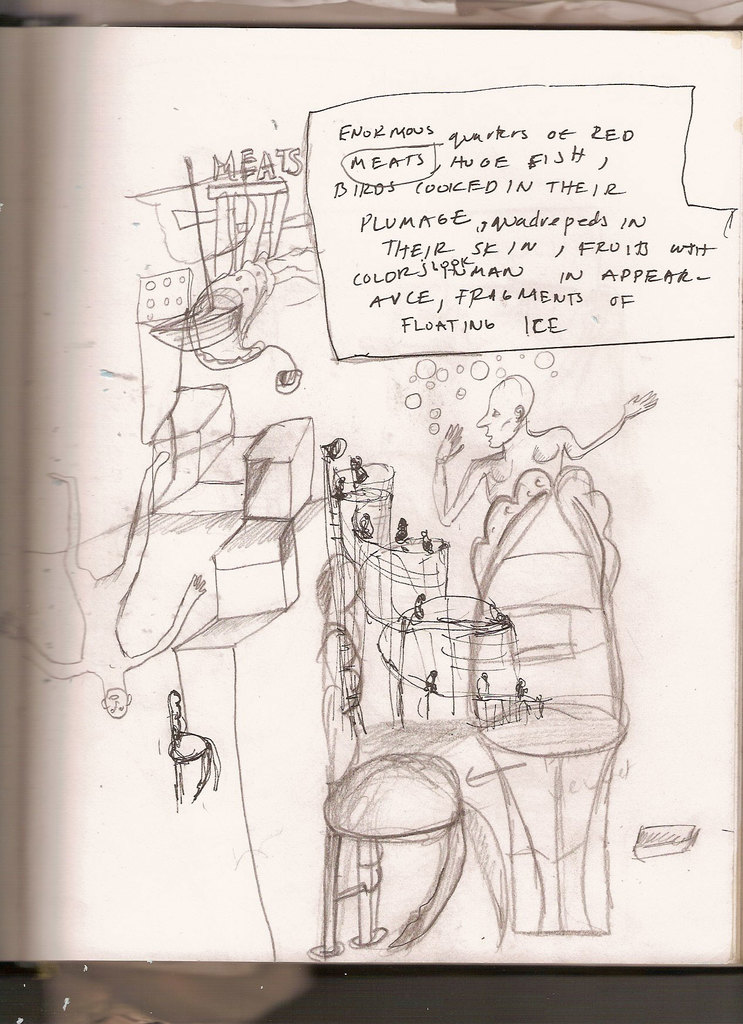 MEATS
ENORMOUS quarters OF RED
MEATS, HUGE FISH,
BIRDS COOKED IN THEIR
PLUMAGE, quadrepeds IN
THEIR SKIN, FRUITS WITH
COLORS look HUMAN IN APPEAR-
ANCE, FRAGMENTS OF
FLOATING ICE